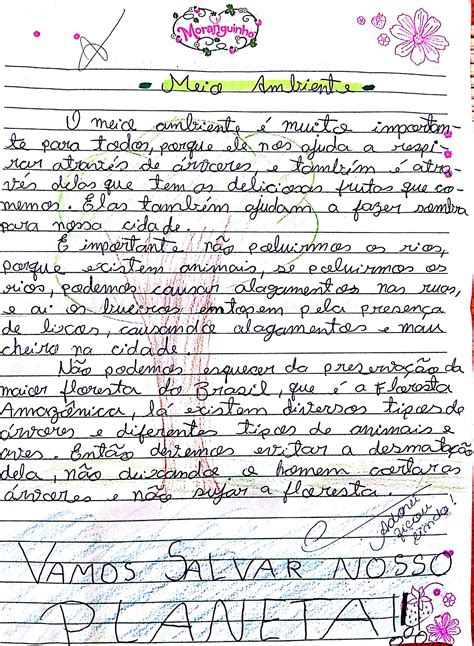 Moranguinho
Meio Ambiente
O meio ambiente é muito importan-
te para todos, porque ele nos ajuda a respi-
rar através de árvores e também é atra-
vés delas que tem as deliciosas frutas que co-
memos. Elas também ajudam a fazer sombra
para nossa cidade.
É importante não poluirmos os rios,
porque existem animais, se poluirmos os
rios, podemos causar alagamentos nas ruas,
e ai os bueiros entopem pela presença
de lixos, causando alagamentos e mau
cheiro na cidade.
Não podemos esquecer da preservação da
maior floresta do Brasil, que é a Floresta
Amazônica, lá existem diversos tipos de
árvores e diferentes tipos de animais e
aves. Então devemos evitar a desmatação
dela, não deixando o homem cortar as
árvores e não sujar a floresta.
Adorei
ficou
lindo!
VAMOS SALVAR NOSSO
PLANETA!!